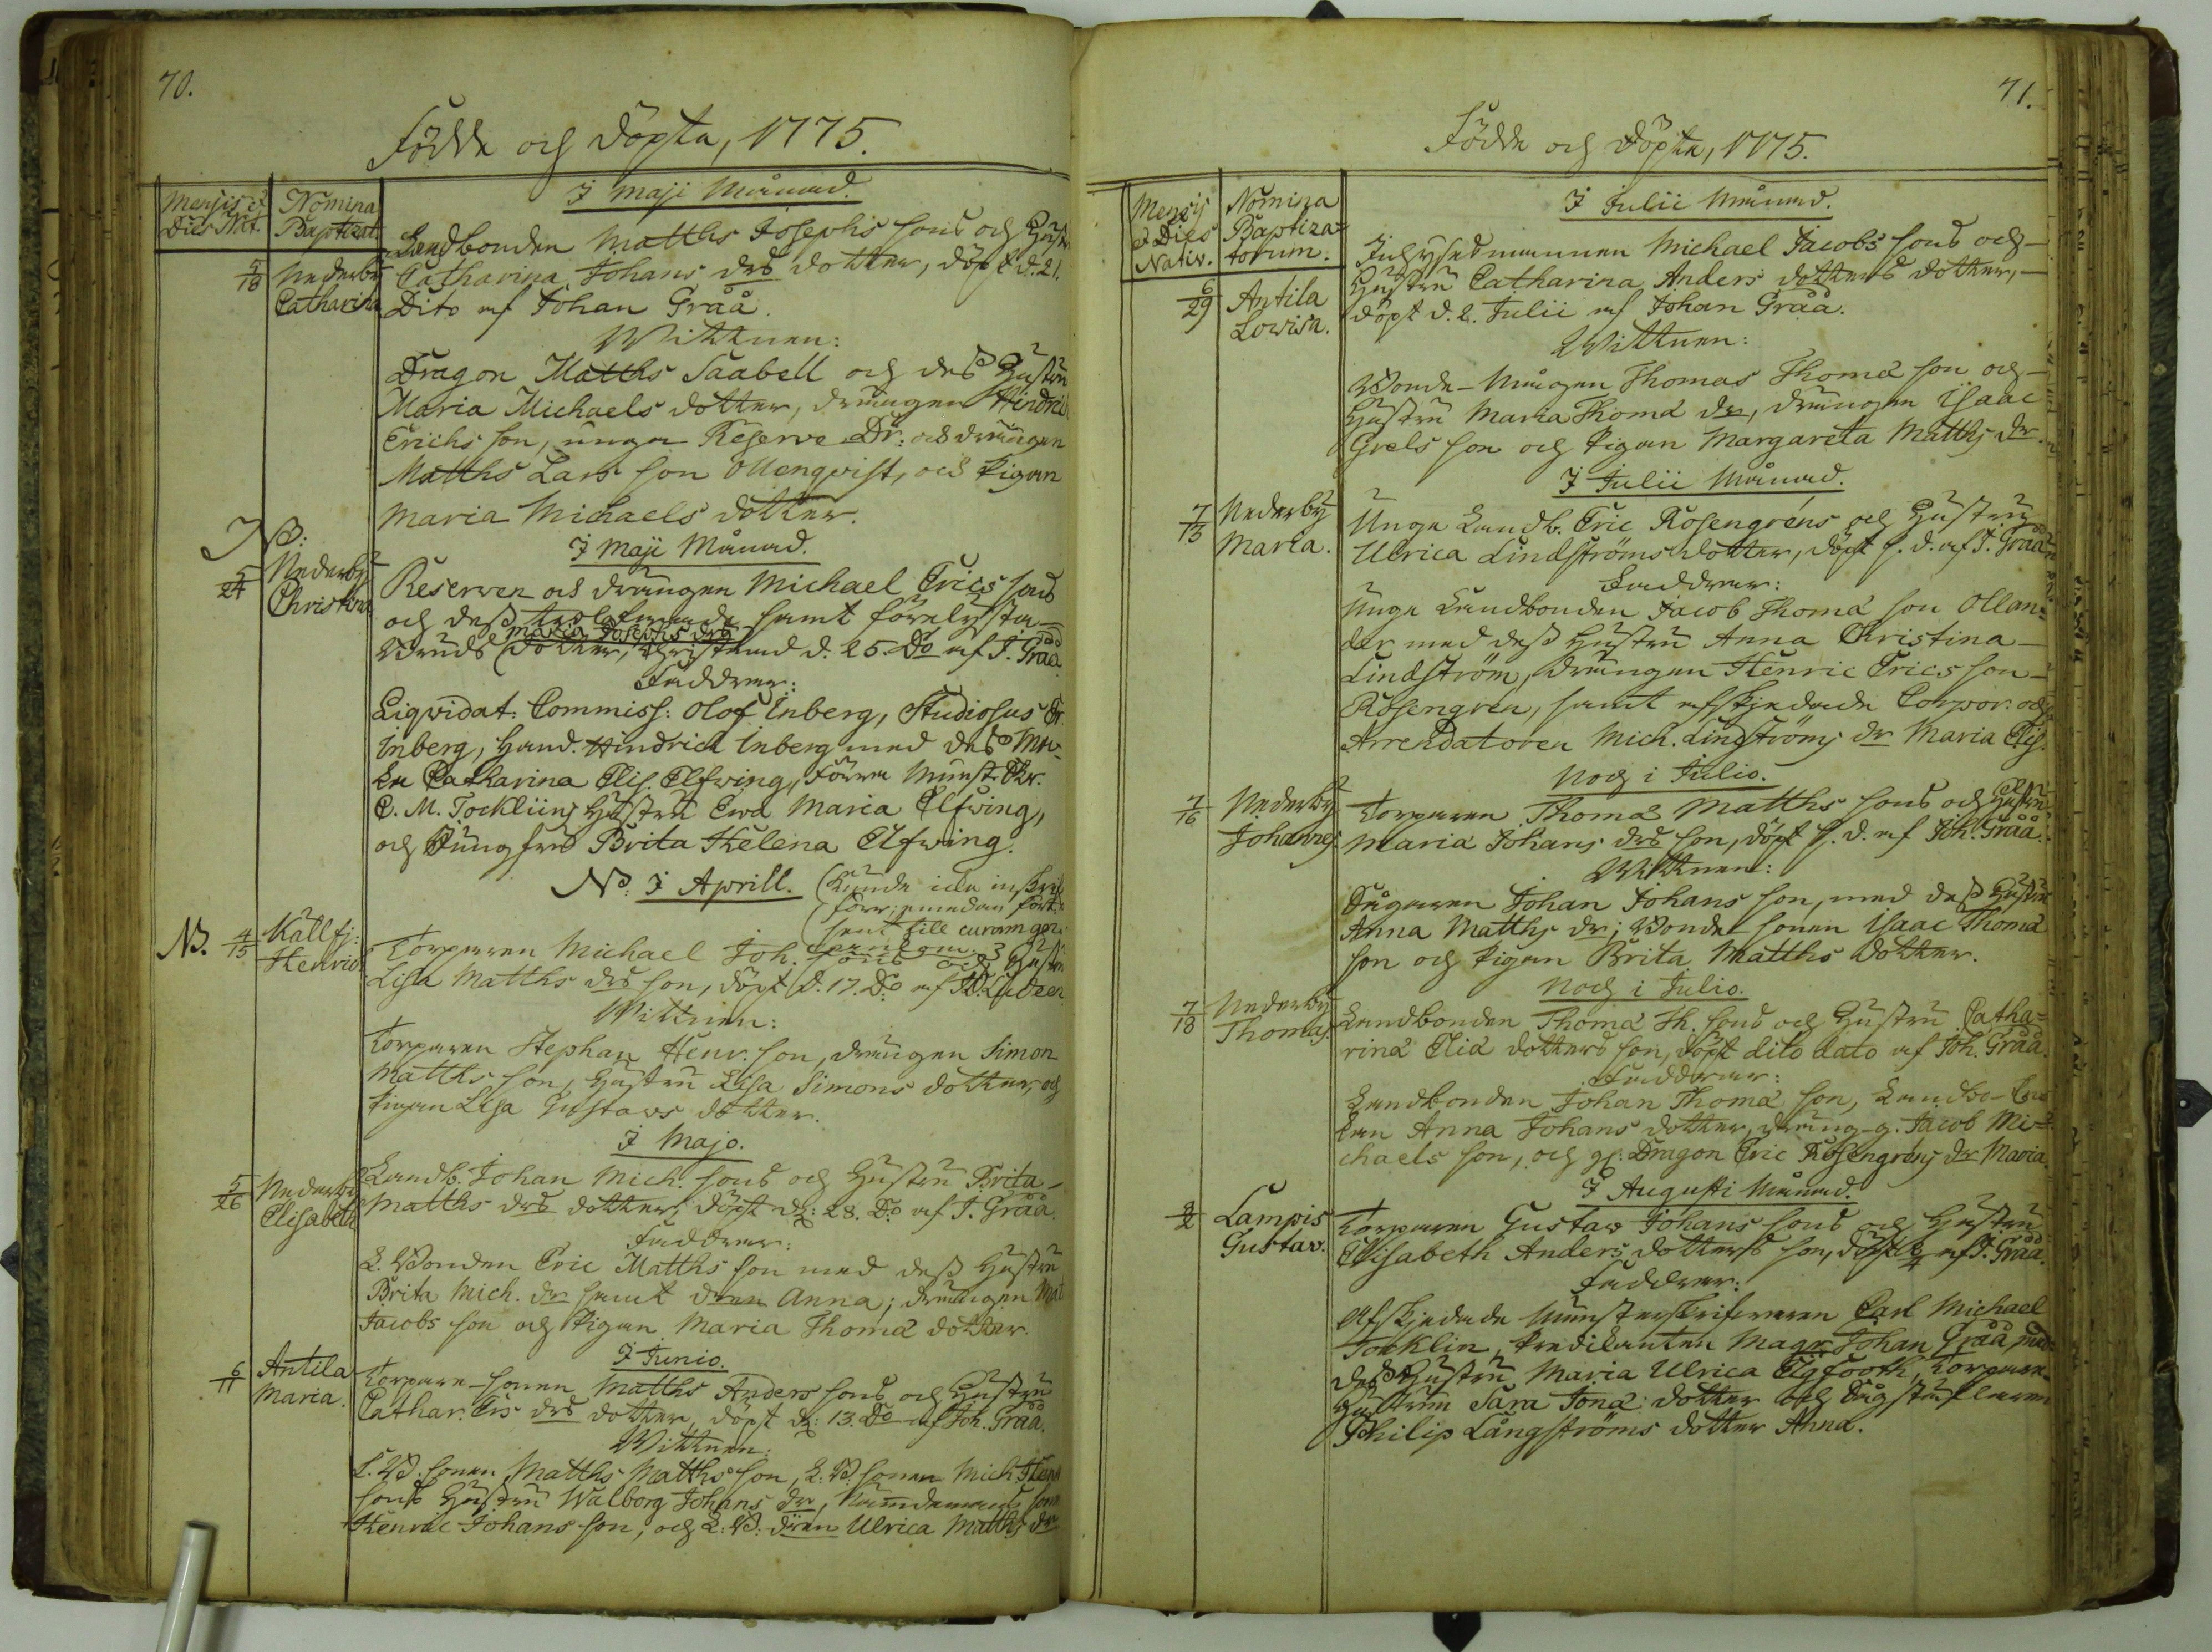 70.
Födde och döpta, 1775.
Mensis et
Dies Nat.
Nomina
Baptizat.
I Maji Månad.
5/18
Nederby
Catharina
Landbonden Matths Josephs sons och Hustr
Catharina Johans drs dotter, döpt d. 21.
Dito af Johan Gråå.
Wittnen:
Dragon Matths Saabell och des Hustru
Maria Michaels dotter, drängen Hindric
Erichs son, unga Reserve Dr: och drängen
Matths Lars son Ollenqvist, och Pigan
Maria Michaels dotter.
I Maji Månad.
NB:
5/24
Nederby
Christina
Reserven och drängen Michael Erics sons
och dess trolofwade samt förelysta
Maria Josephs drs
Bruds dotter, Christnad d. 25. Do af J. Gråå.
Faddrar:
Liqvidat: Commiss: Olof Inberg, Studiosus
Inberg, Hand. Hindrich Inberg med des
Catharina Elis. Elfwing, förra Münst. Skr.
C. M. Tocklins Hustru Ewa Maria Elfwing,
och Jungfru Brita Helena Elfwing.
NB: I Aprill.
(Kunde icke inskrif
(förr; emedan
sent till curam
NB. 4/15
Källfj:
Henric
Torparen Michael Joh. sons och Hustru
Lisa Matths drs son, döpt d. 17. Do af
Wittnen:
Torparen Stephan Henr. son, drängen Simon
Matths son, Hustru Lisa Simons dotter, och
Pigan Lisa Gustavs dotter.
I Majo.
5/26
Nederby
Elisabeth
Landb. Johan Mich. sons och Hustru Brita
Matths drs dotter, döpt d: 28. Do af J. Gråå.
Faddrar:
L. Bonden Eric Matths son med dess Hustru
Brita Mich. dr samt dren Anna; drängen Mat
Jacobs son och Pigan Maria Thomæ dotter.
I Junio.
6/11
Antila
Maria.
Torpare-sonen Matths Anders sons och Hustru
Cathar. Ers drs dotter, döpt d: 13. Do af Joh. Gråå.
Wittnen:
L. B. sonen Matths Matths son, L: B. sonen Mich. Hen
sons Hustru Walborg Johans dr, Nämdemans son
Henric Johans son, och L: B: dren Ulrica Matths dr
71.
Födde och döpta, 1775.
Mensis
et Dies
Nativ.
Nomina
Baptiza-
torum.
I Julii Månad.
6/29
Antila
Lowisa.
Inhysesmannen Michael Jacobs sons och
Hustru Catharina Anders dotters dotter,
döpt d. 2. Julii af Johan Gråå.
Wittnen:
Bonde-Mågen Thomas Thomæ son och
Hustru Maria Thomæ dr, drängen Isaac
Grels son och Pigan Margareta Matths dr.
I Julii Månad.
7/13
Nederby
Maria.
Unga Landb. Eric Rosengréns och Hustru
Ulrica Lindströms dotter, döpt s. d. af J. Gråå
Faddrar:
Unga Landbonden Jacob Thomæ son Ollan-
der med dess Hustru Anna Christina
Lindström, drängen Henric Erics son
Rosengrén, samt afskjedade Corpor. och
Arrendatoren Mich. Lindströms dr Maria Elis.
Noch i Julio.
7/16
Nederby
Johannes.
Torparen Thomæ Matths sons och Hustru
Maria Johans drs son, döpt s. d. af Joh. Gråå.
Wittnen:
Sågaren Johan Johans son, med dess Hustru
Anna Matths dr; Bonde sonen Isaac Thomæ
son och Pigan Brita Matths dotter.
Noch i Julio.
7/18
Nederby
Thomas.
Landbonden Thomæ Th. sons och Hustru Catha-
rina Eliæ dotters son, döpt dito dato af Joh. Gråå.
Faddrar:
Landbonden Johan Thomæ son, Landbo-
Anna Johans dotter, dräng-g. Jacob Mi-
chaels son, och gl: Dragon Eric Rosengréns dr Maria.
I Augusti Månad.
8/2
Lampis
Gustav.
Torparen Gustav Johans sons och Hustru
Elisabeth Anders dotters son, döpt 8/4 af J. Gråå.
Faddrar:
Afskjedade Münsterskrifwaren Carl Michael
Tocklin, Predikanten Mag:r Johan Gråå med
des Hustru Maria Ulrica Elgfooth, Torpare-
Hustrun Sara Jonæ dotter och
Philip Långströms dotter Anna.